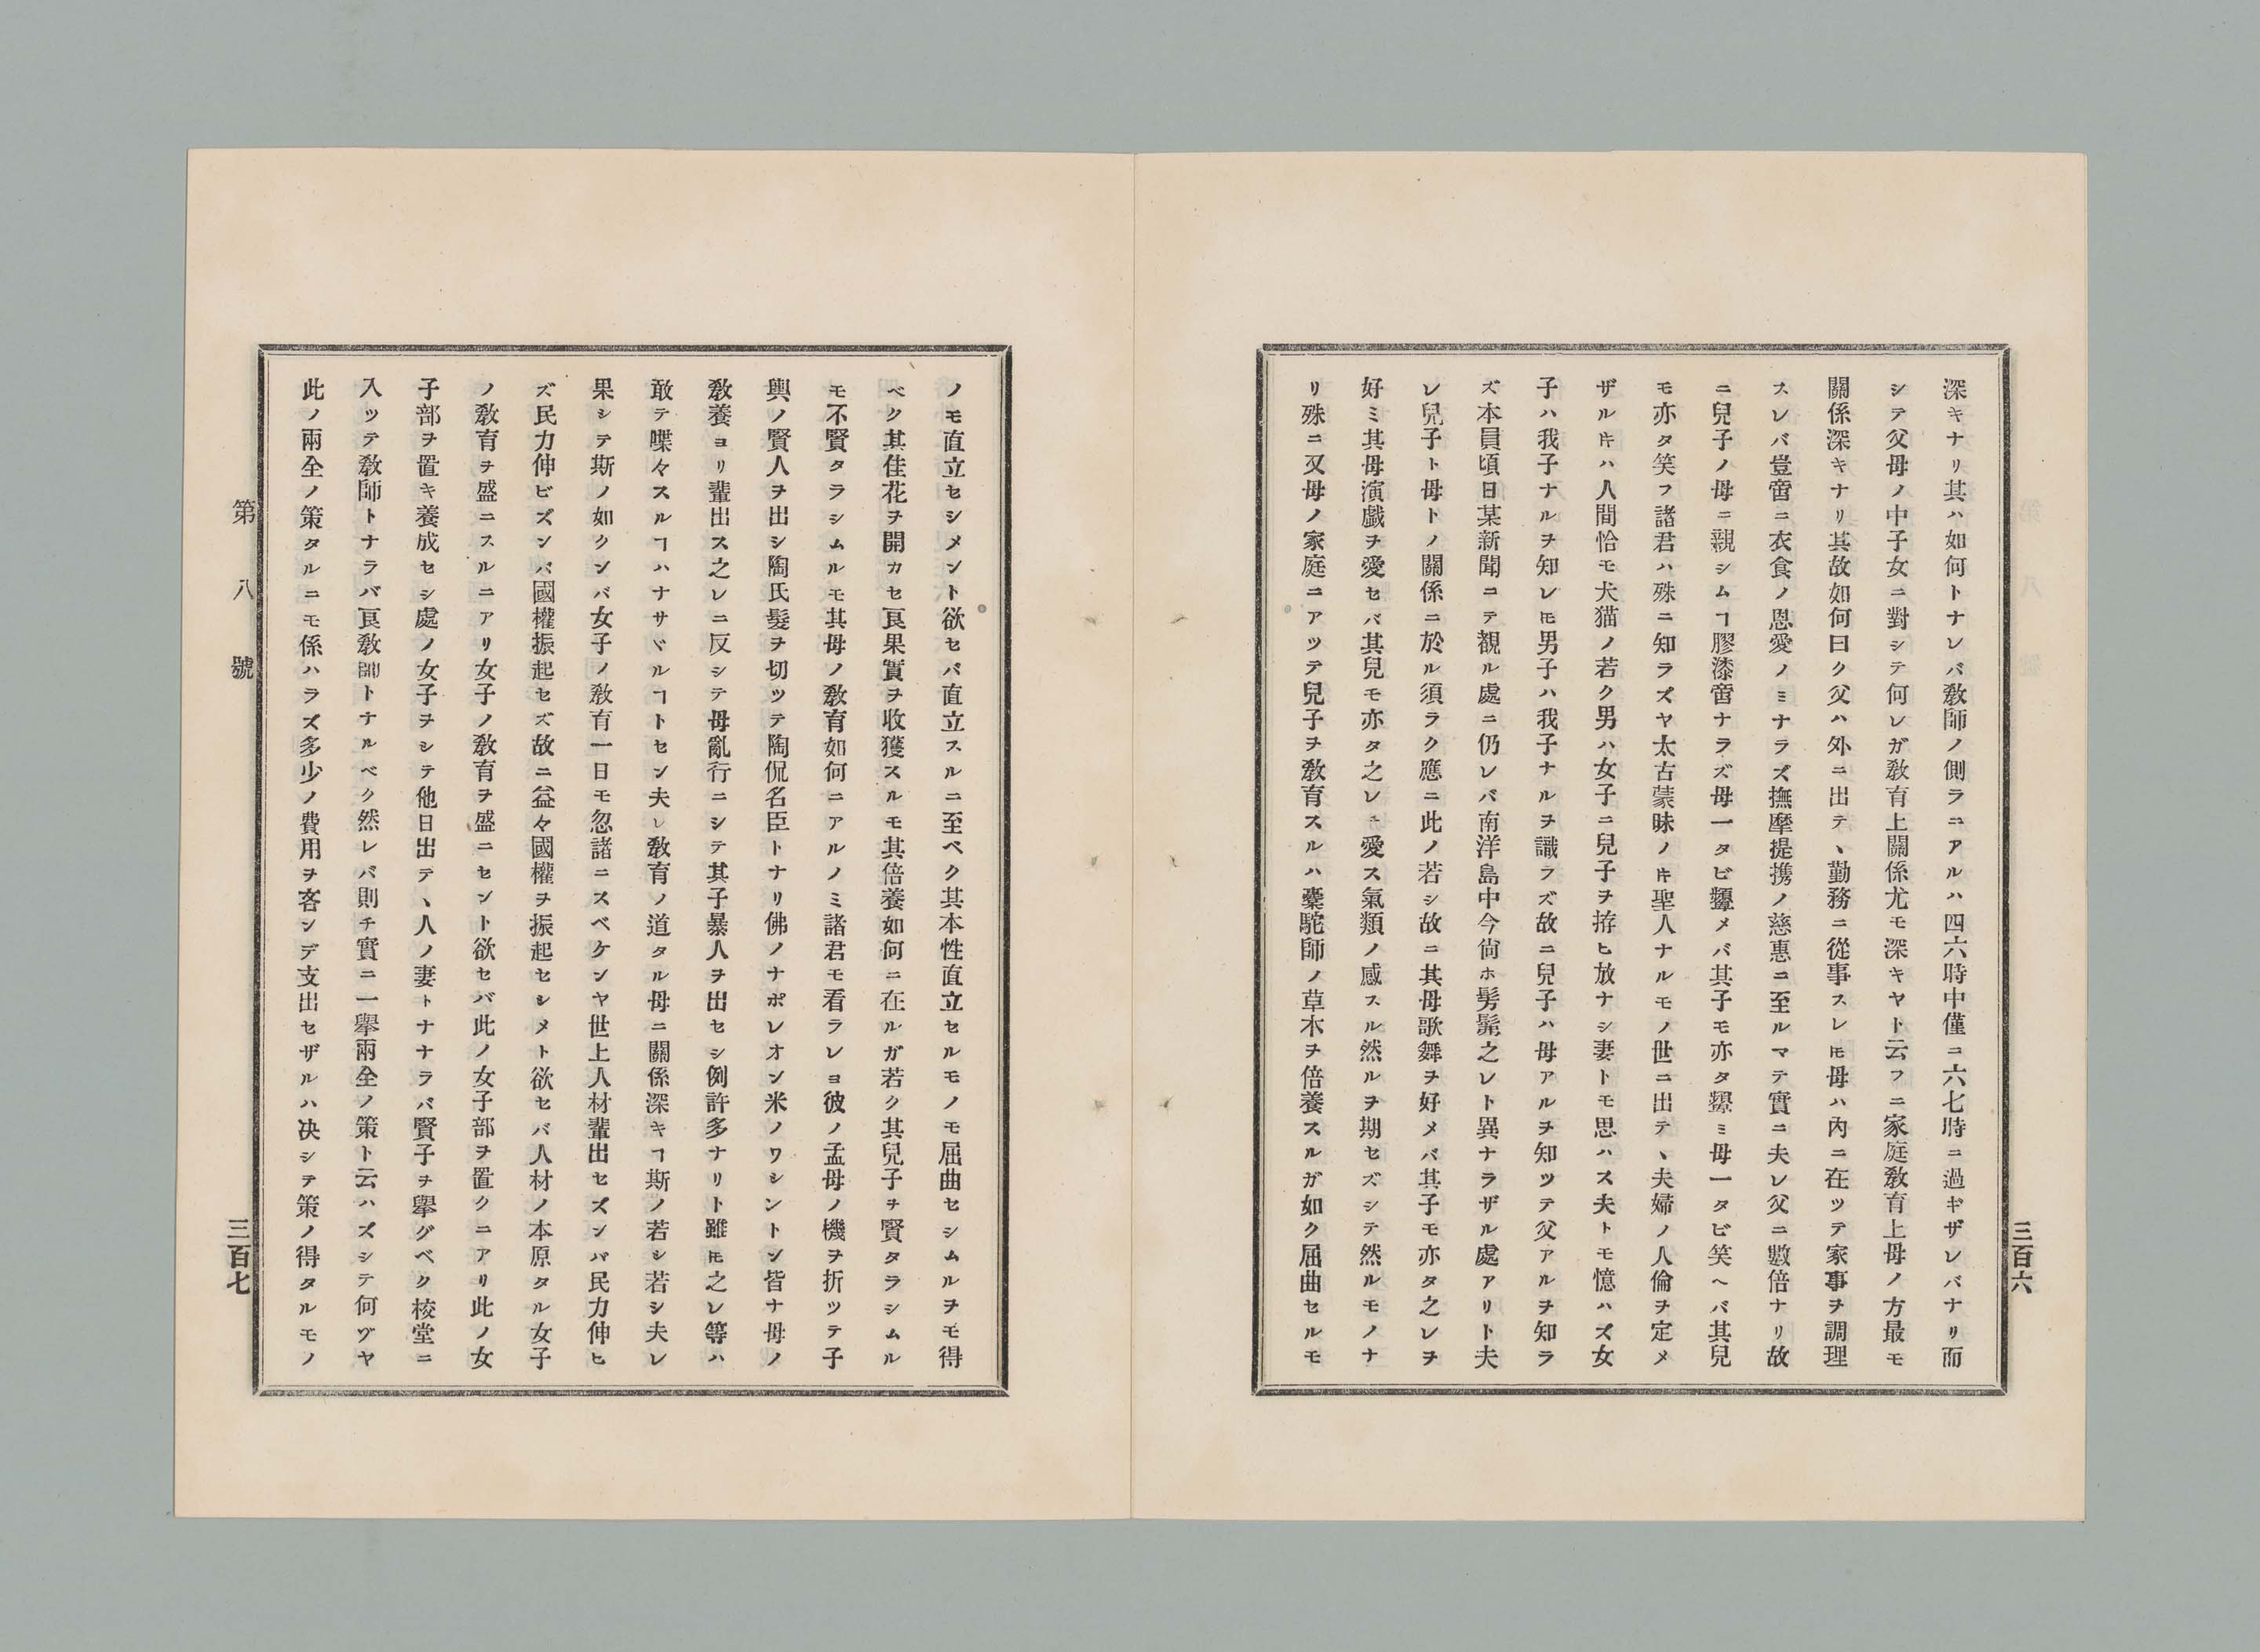 三百六
深キナリ其ハ如何トナレバ敎師ノ側ラニアルハ四六時中僅ニ六七時ニ過ギザレバナリ而
シテ父母ノ中子女ニ對シテ何レガ敎育上關係尤モ深キヤト云フニ家庭敎育上母ノ方最モ
關係深キナリ其故如何曰ク父ハ外ニ出テ、勤務ニ從事スレ𪜈母ハ內ニ在ツテ家事ヲ調理
スレバ豈啻ニ衣食ノ恩愛ノミナラズ撫摩提携ノ慈惠ニ至ルマテ實ニ夫レ父ニ數倍ナリ故
ニ兒子ノ母ニ親シムヿ膠漆啻ナラズ母一タビ顰メバ其子モ亦タ顰ミ母一タビ笑ヘバ其兒
モ亦タ笑フ諸君ハ殊ニ知ラズヤ太古蒙昧ノ𪜀聖人ナルモノ世ニ出テ、夫婦ノ人倫ヲ定メ
ザル𪜀ハ人間恰モ犬猫ノ若ク男ハ女子ニ兒子ヲ拵ヒ放ナシ妻トモ思ハス夫トモ憶ハズ女
子ハ我子ナルヲ知レ𪜈男子ハ我子ナルヲ識ラズ故ニ兒子ハ母アルヲ知ツテ父アルヲ知ラ
ズ本員頃日某新聞ニテ覩ル處ニ仍レバ南洋島中今尙ホ髣髴之レト異ナラザル處アリト夫
レ兒子ト母トノ關係ニ於ル須ラク應ニ此ノ若シ故ニ其母歌舞ヲ好メバ其子モ亦タ之レヲ
好ミ其母演戲ヲ愛セバ其兒モ亦タ之レヲ愛ス氣類ノ感スル然ルヲ期セズシテ然ルモノナ
リ殊ニ又母ノ家庭ニアツテ兒子ヲ敎育スルハ橐駝師ノ草木ヲ倍養スルガ如ク屈曲セルモ
ノモ直立セシメント欲セバ直立スルニ至ベク其本性直立セルモノモ屈曲セシムルヲモ得
ベク其佳花ヲ開カセ良果實ヲ收獲スルモ其倍養如何ニ在ルガ若ク其兒子ヲ賢タラシムル
モ不賢タラシムルモ其母ノ敎育如何ニアルノミ諸君モ看ラレヨ彼ノ孟母ノ機ヲ折ツテ子
輿ノ賢人ヲ出シ陶氏髮ヲ切ツテ陶侃名臣トナリ佛ノナポレオン米ノワシントン皆ナ母ノ
敎養ヨリ輩出ス之レニ反シテ母亂行ニシテ其子暴人ヲ出セシ例許多ナリト雖𪜈之レ等ハ
敢テ喋々スルヿハナサヾルヿトセン夫レ敎育ノ道タル母ニ關係深キヿ斯ノ若シ若シ夫レ
果シテ斯ノ如クンバ女子ノ敎育一日モ忽諸ニスベケンヤ世上人材輩出セズンバ民力伸ヒ
ズ民力伸ビズンバ國權振起セズ故ニ益々國權ヲ振起セシメト欲セバ人材ノ本原タル女子
ノ敎育ヲ盛ニスルニアリ女子ノ敎育ヲ盛ニセント欲セバ此ノ女子部ヲ置クニアリ此ノ女
子部ヲ置キ養成セシ處ノ女子ヲシテ他日出テ、人ノ妻トナナラバ賢子ヲ擧グベク校堂ニ
入ツテ敎師トナラバ良敎師トナルベク然レバ則チ實ニ一擧兩全ノ策ト云ハズシテ何ヅヤ
此ノ兩全ノ策タルニモ係ハラズ多少ノ費用ヲ吝ンデ支出セザルハ决シテ策ノ得タルモノ
第八號
三百七